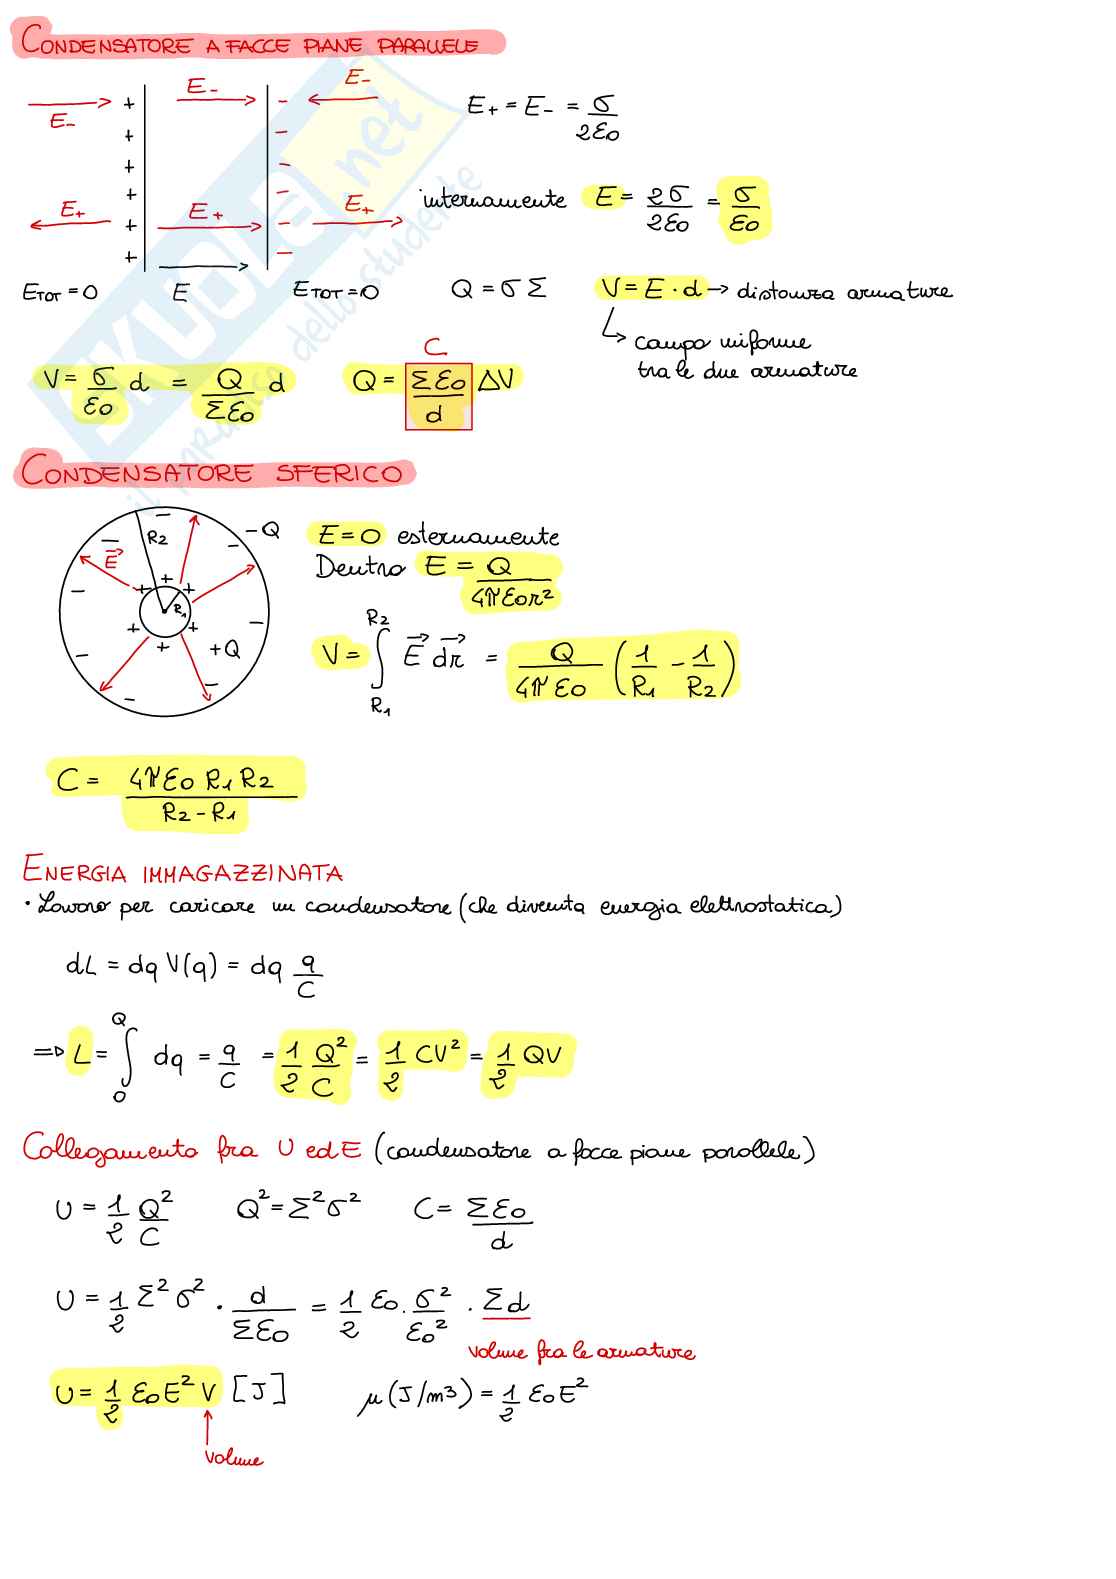 CONDENSATORE A FACCE PIANE PARALLELE
E₋ E₋ E₋
E₊ = E₋ = σ/2ε₀
E₊ E₊ E₊
internamente E = 2σ/2ε₀ = σ/ε₀
E_TOT = 0 E E_TOT = 0 Q = σ Σ V = E · d → distanza armature
↳ campo uniforme
tra le due armature
V = σ/ε₀ d = Q/Σε₀ d
C
Q = Σε₀/d ΔV
CONDENSATORE SFERICO
-Q
R₂
E⃗
R₁
+Q
E = 0 esternamente
Dentro E = Q/4πε₀r²
V = ∫_R₁^R₂ E⃗ dr⃗ = Q/4πε₀ (1/R₁ - 1/R₂)
C = 4πε₀ R₁ R₂/R₂ - R₁
ENERGIA IMMAGAZZINATA
· Lavoro per caricare un condensatore (che diventa energia elettrostatica)
dL = dq V(q) = dq q/C
⇒ L = ∫_0^Q dq = q/C = 1/2 Q²/C = 1/2 CV² = 1/2 QV
Collegamento fra U ed E (condensatore a facce piane parallele)
U = 1/2 Q²/C Q² = Σ²σ² C = Σε₀/d
U = 1/2 Σ²σ² · d/Σε₀ = 1/2 ε₀ · σ²/ε₀² · Σd
volume fra le armature
U = 1/2 ε₀E² V [J] μ (J/m³) = 1/2 ε₀E²
volume
SKUOLA.net
il paradiso dello studente